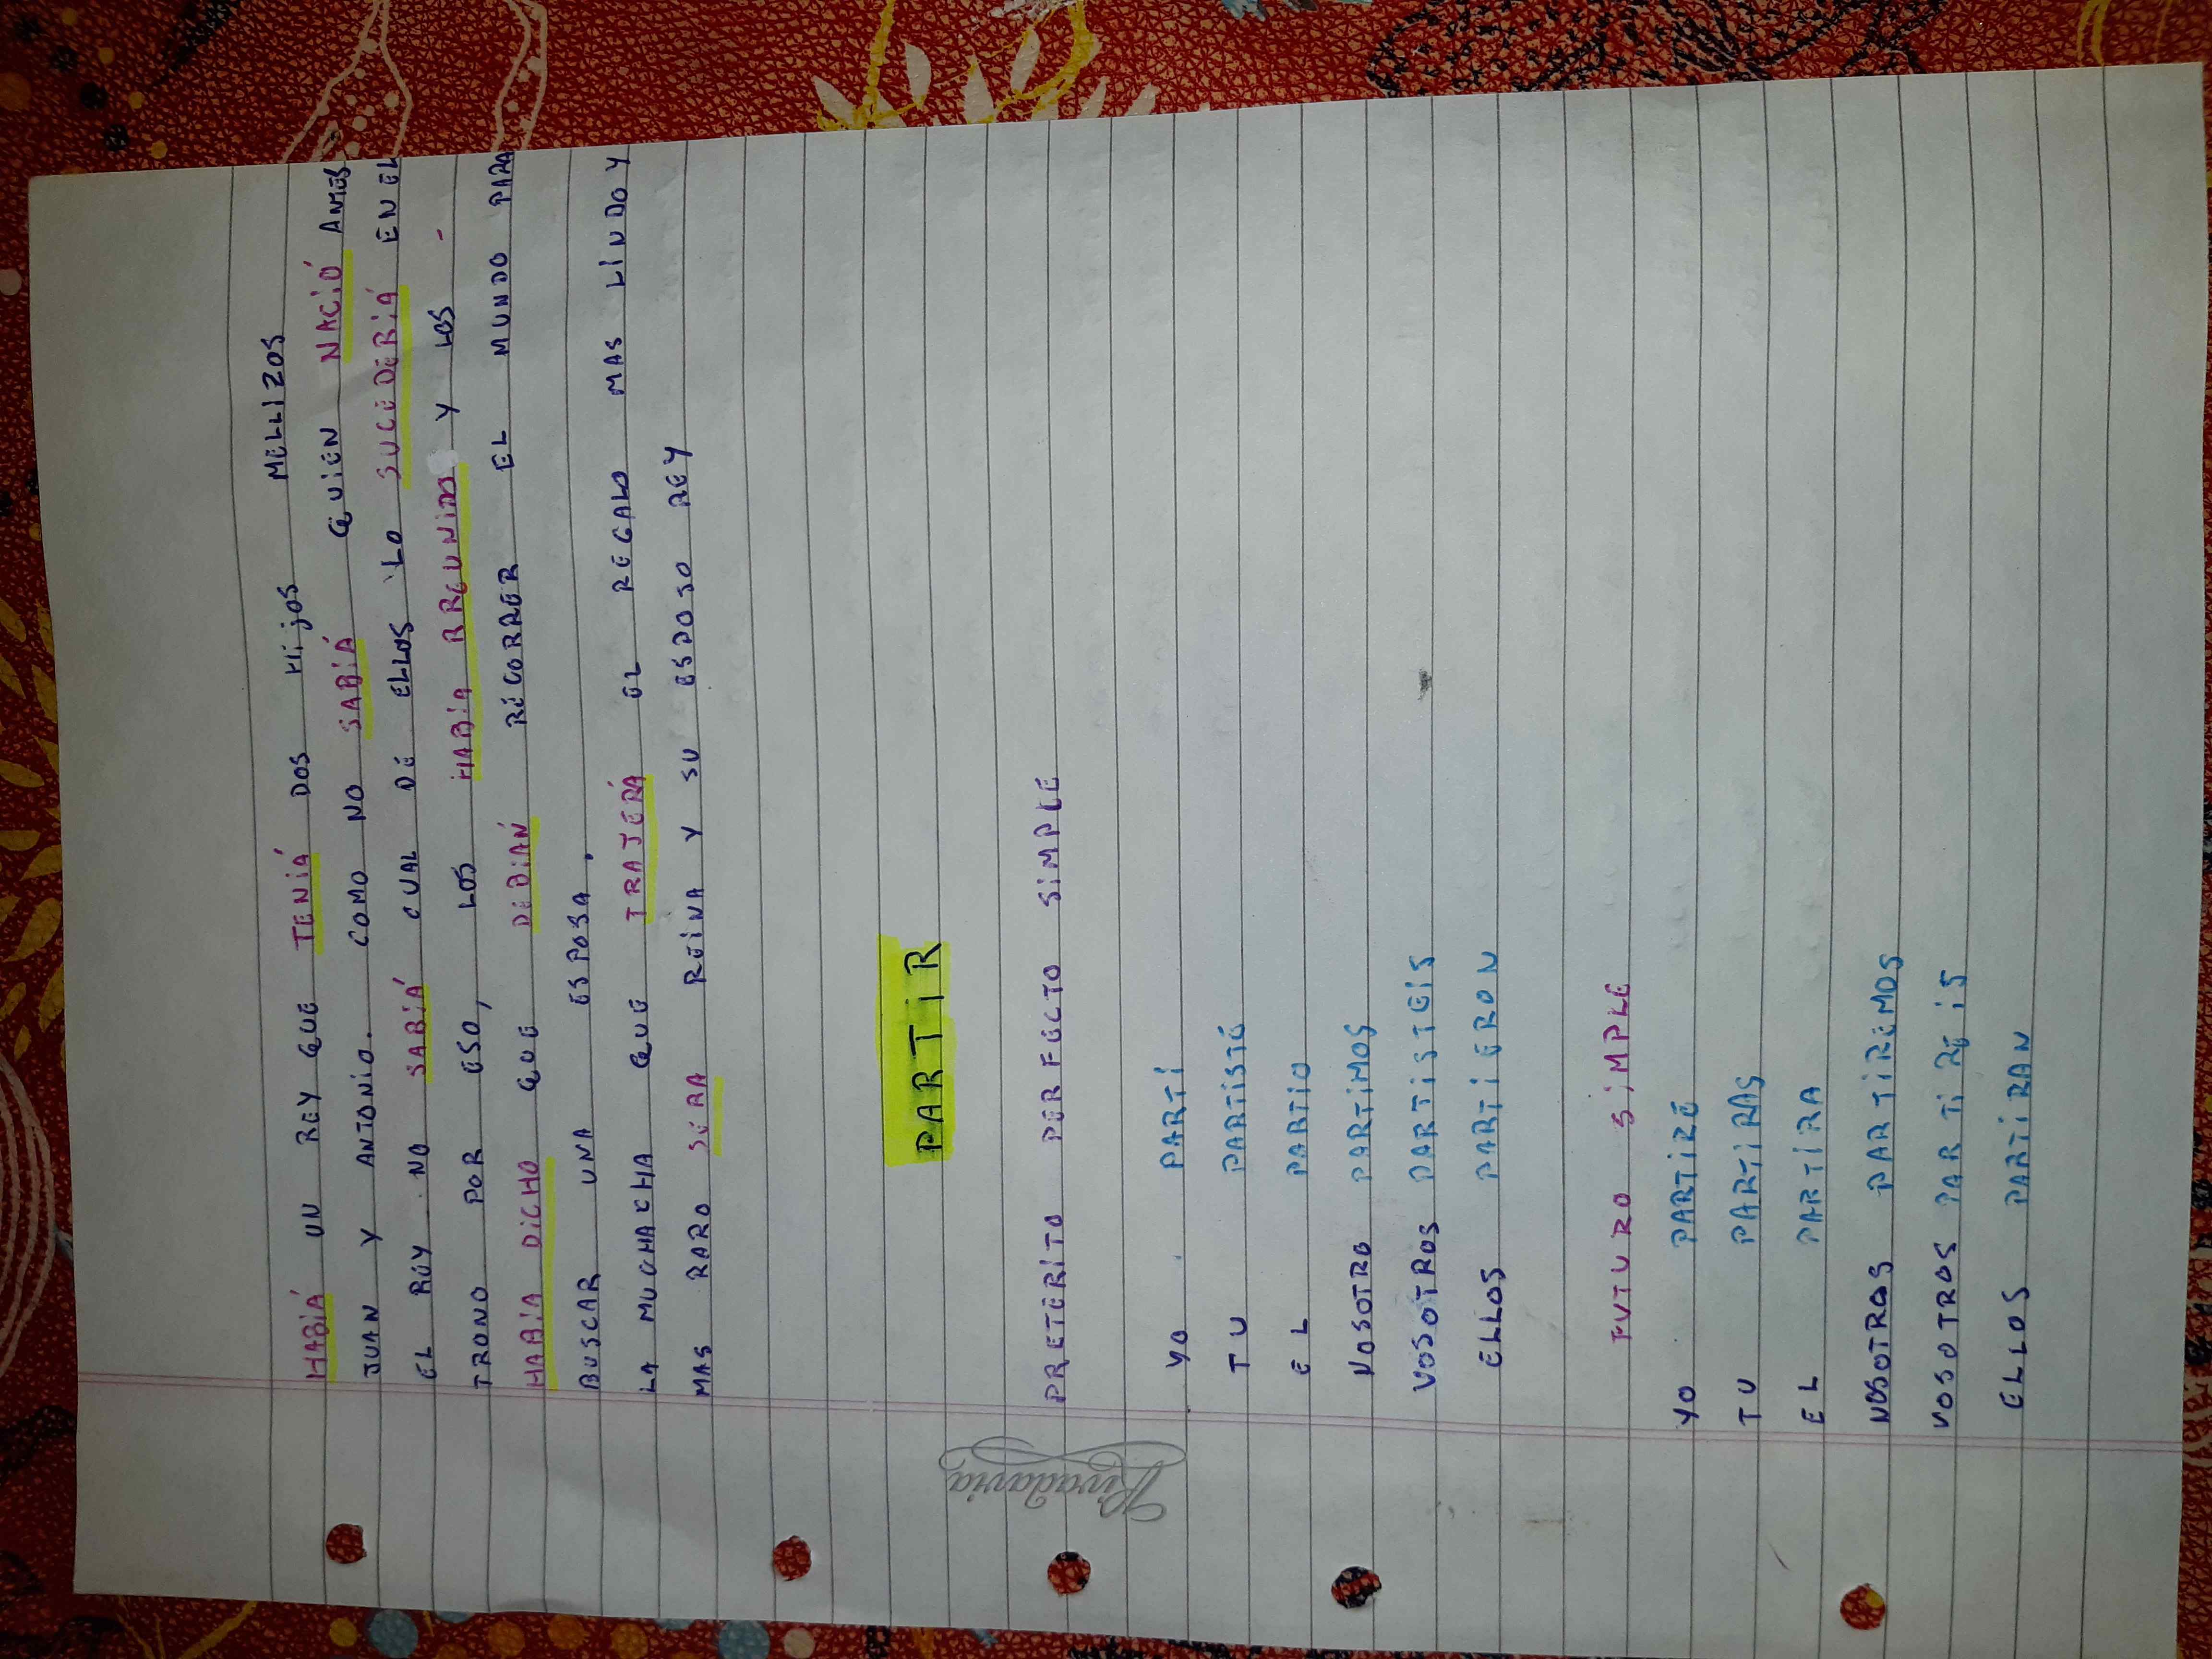 HABIÁ UN REY QUE TENIÁ DOS HijOS MELLIZOS
JUAN Y ANTONIO. COMO NO SABIÁ QUIEN NACIÓ ANTES
EL REY NO SABIÁ CUAL DE ELLOS LO SUCEDERIÁ EN EL
TRONO POR ESO, LOS HABIA RREUNIDOS Y LOS -
HABIA DICHO QUE DEBIAŃ RECORRER EL MUNDO PARA
BUSCAR UNA ESPOSA.
LA MUCHACHA QUE TRAJERÁ EL REGALO MAS LINDO Y
MAS RARO SERA REINA Y SU ESPOSO REY
PARTIR
PRETERITO PERFECTO SIMPLE
YO PARTÍ
TU PARTISTE
EL PARTIO
NOSOTRO PARTIMOS
VOSOTROS PARTISTEIS
ELLOS PARTIERON
FUTURO SIMPLE
YO PARTIRE
TU PARTIRAS
EL PARTIRA
NOSOTROS PARTIREMOS
VOSOTROS PARTIREIS
ELLOS PARTIRAN
Rivadavia